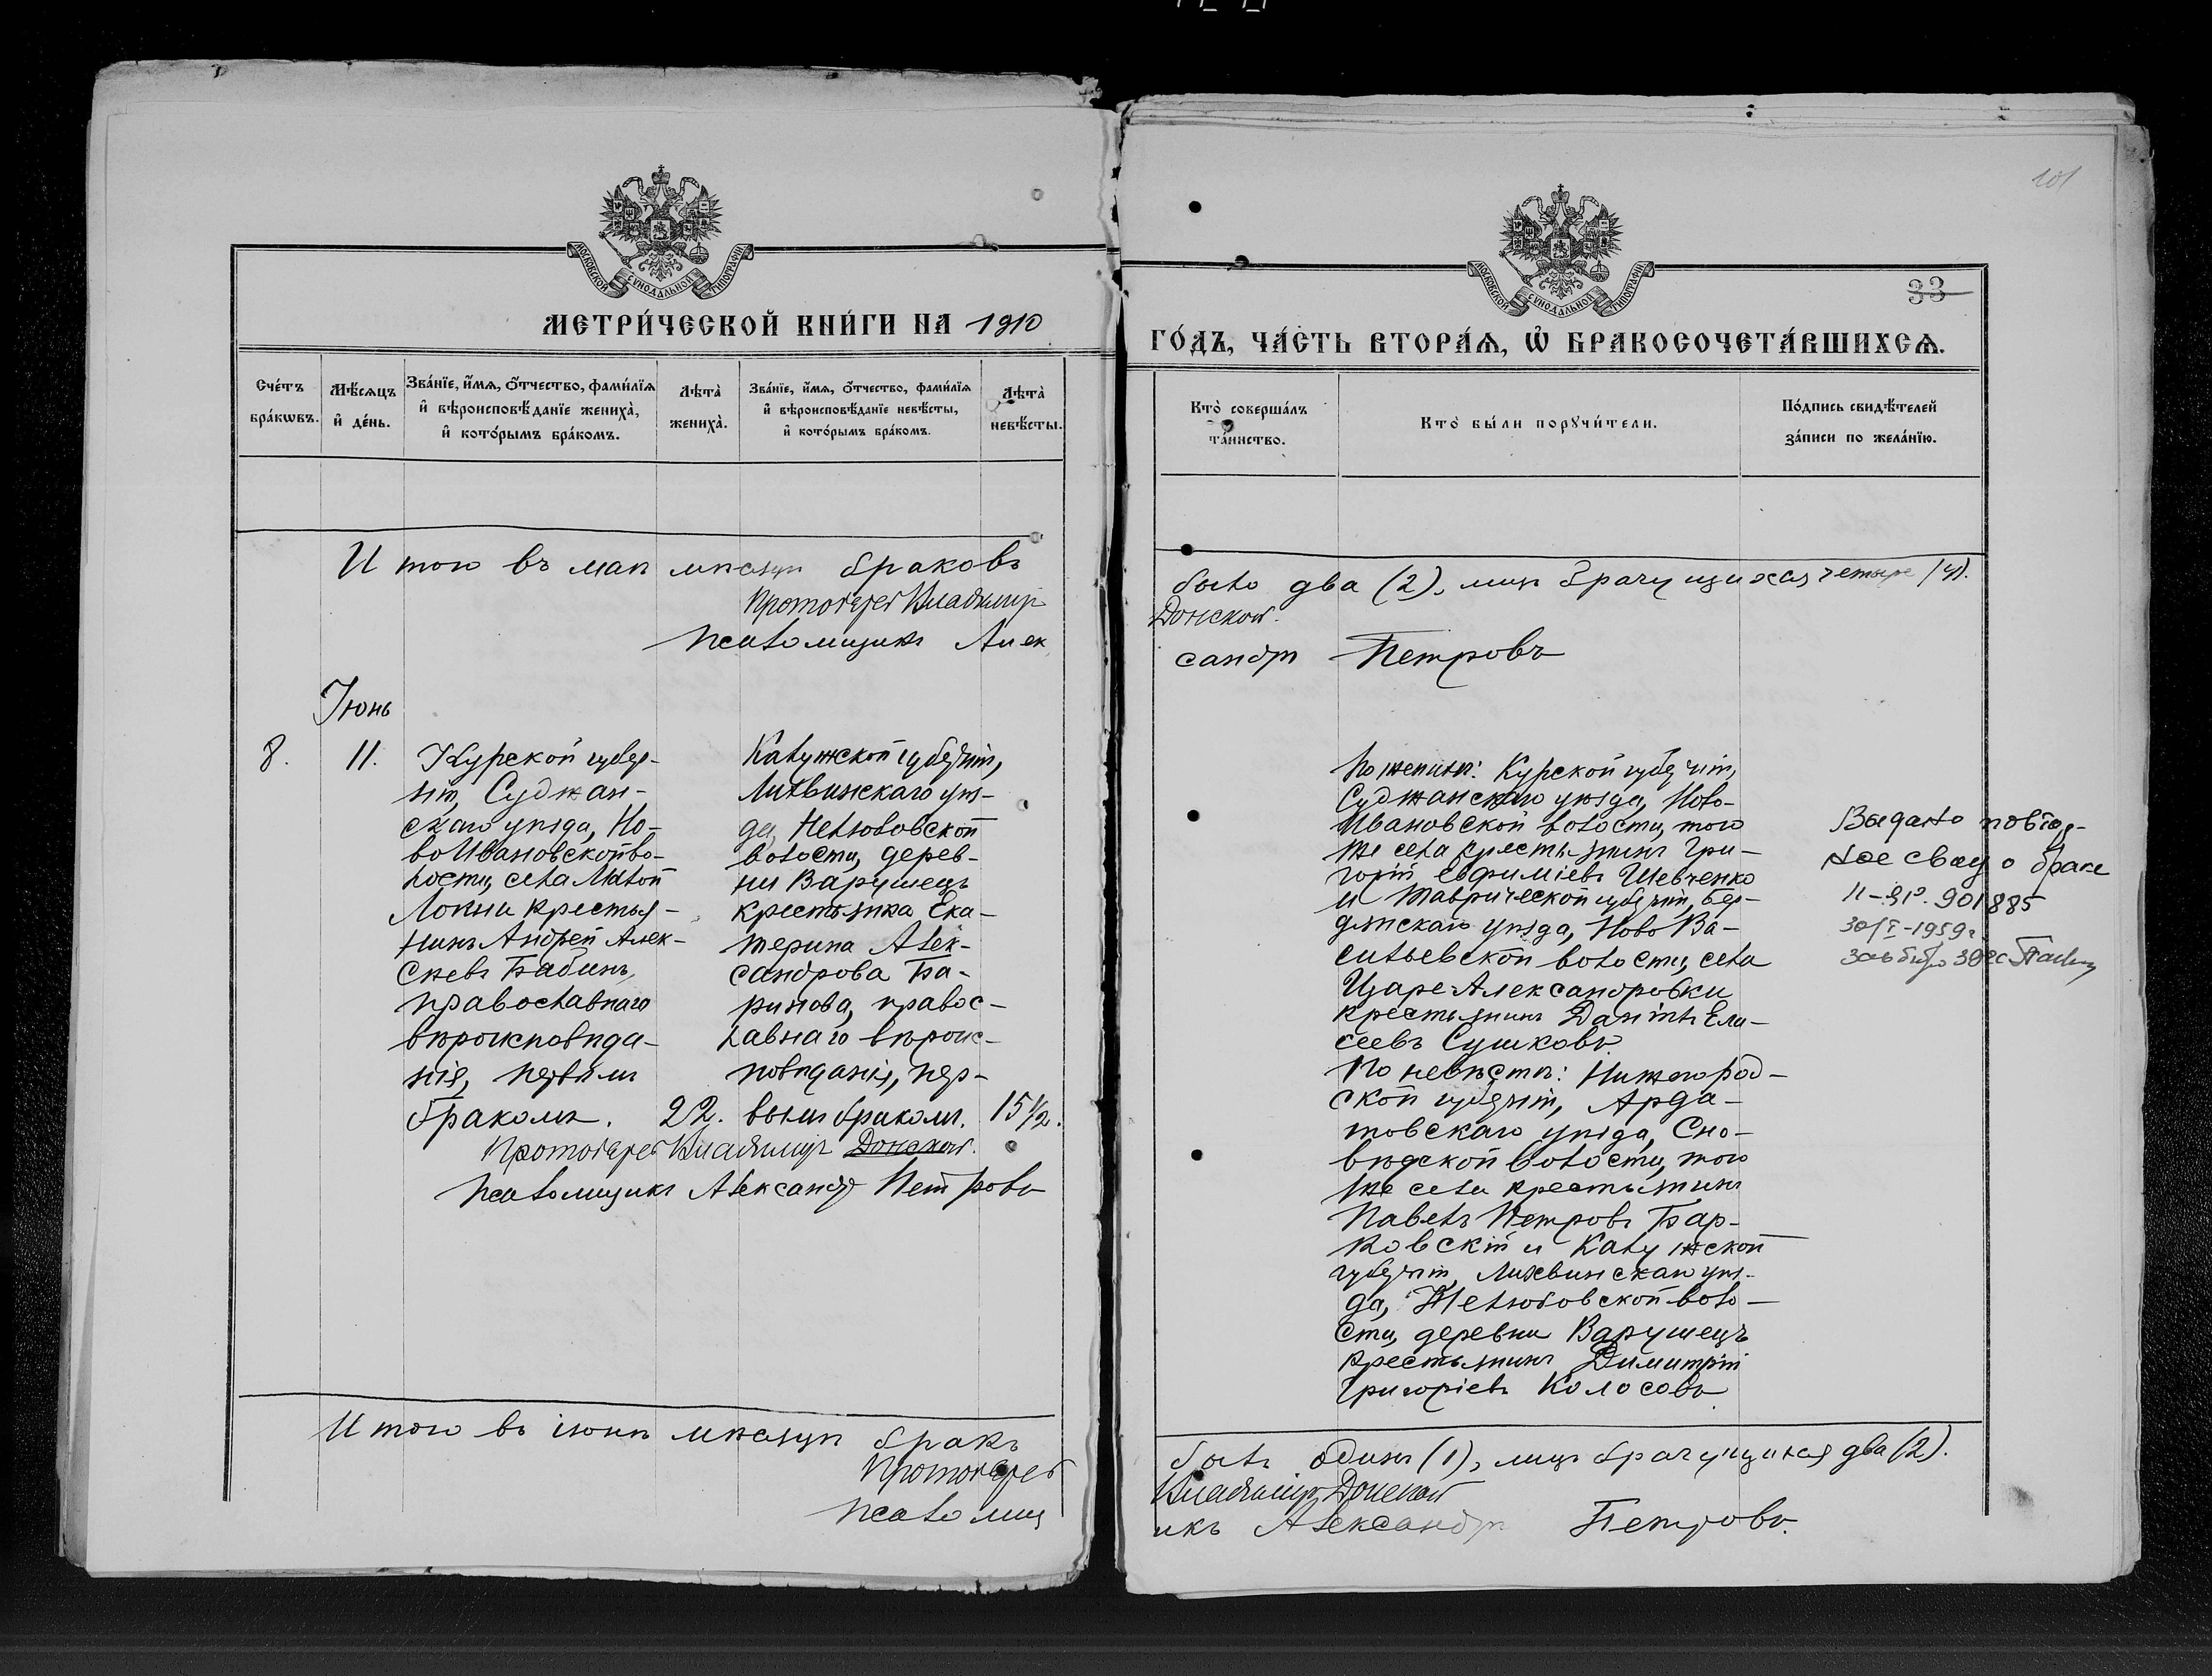 МОСКОВСКОЙ СѴНОДАЛЬНОЙ ТИПОГРАФІИ
МЕТРИ́ЧЕСКОЙ КНИ́ГИ НА 1910
Сче́тъ бра́кѡвъ.
Мѣ́сѧцъ и҆ де́нь.
Зва́нїе, и҆́мѧ, ѻ҆́тчество, фами́лїѧ и҆ вѣроисповѣ́данїе жениха̀, и҆ кото́рымъ бра́комъ.
Лѣта̀ жениха̀.
Зва́нїе, и҆́мѧ, ѻ҆́тчество, фами́лїѧ и҆ вѣроисповѣ́данїе невѣ́сты, и҆ кото́рымъ бра́комъ.
Лѣта̀ невѣ́сты.
Итого въ маѣ мѣсяцѣ браковъ
Протоіерей Владиміръ
Псаломщикъ Алек
Іюнь
8. 11.
Курской губер-
ніи, Суджан-
скаго уѣзда, Но-
во Ивановской во-
лости, села Малой
Локни крестья-
нинъ Андрей Алек-
сѣевъ Бабинъ,
православнаго
вѣроисповѣда-
нія, первымъ
бракомъ. 22.
Калужской губерніи,
Лихвинскаго уѣз-
да, Нелюбовской
волости, дерев-
ни Варушецъ
крестьянка Ека-
терина Алек-
сандрова Ба-
ринова, правос-
лавнаго вѣроис-
повѣданія, пер-
вымъ бракомъ. 15½.
Протоіерей Владиміръ Донской.
Псаломщикъ Александръ Петровъ
Итого въ іюнѣ мѣсяцѣ бракъ
Протоіерей
Псаломщ
101
33
МОСКОВСКОЙ СѴНОДАЛЬНОЙ ТИПОГРАФІИ
ГО́ДЪ, ЧА́СТЬ ВТОРА́Ѧ, Ѡ҆ БРАКОСОЧЕТА́ВШИХСѦ.
Кто̀ соверша́лъ та́инство.
Кто̀ бы́ли порꙋчи́тели.
По́дпись свидѣ́телей за́писи по жела́нїю.
было два (2), лицъ брачущихся четыре (4).
Донской.
сандръ Петровъ
По женихѣ: Курской губерніи,
Суджанскаго уѣзда, Ново-
Ивановской волости, того
же села крестьянинъ Гри-
горій Евфиміевъ Шевченко
и Таврической губерніи, Бер-
дянскаго уѣзда, Ново Ва-
сильевской волости, села
Царе-Александровки
крестьянинъ Даніилъ Ели-
сеевъ Сушковъ.
По невѣстѣ: Нижегород-
ской губерніи, Арда-
товскаго уѣзда, Сно-
вѣдской волости, того
же села крестьянинъ
Павелъ Петровъ Бар-
ковскій и Калужской
губерніи, Лихвинскаго уѣз-
да, Нелюбовской воло-
сти, деревни Варушецъ
крестьянинъ Димитрій
Григоріевъ Колосовъ.
Выдано повтор-
ное свид о браке
901885
30/I-1959г.
былъ одинъ (1), лицъ брачущихся два (2).
Владиміръ Донской
икъ Александръ Петровъ.